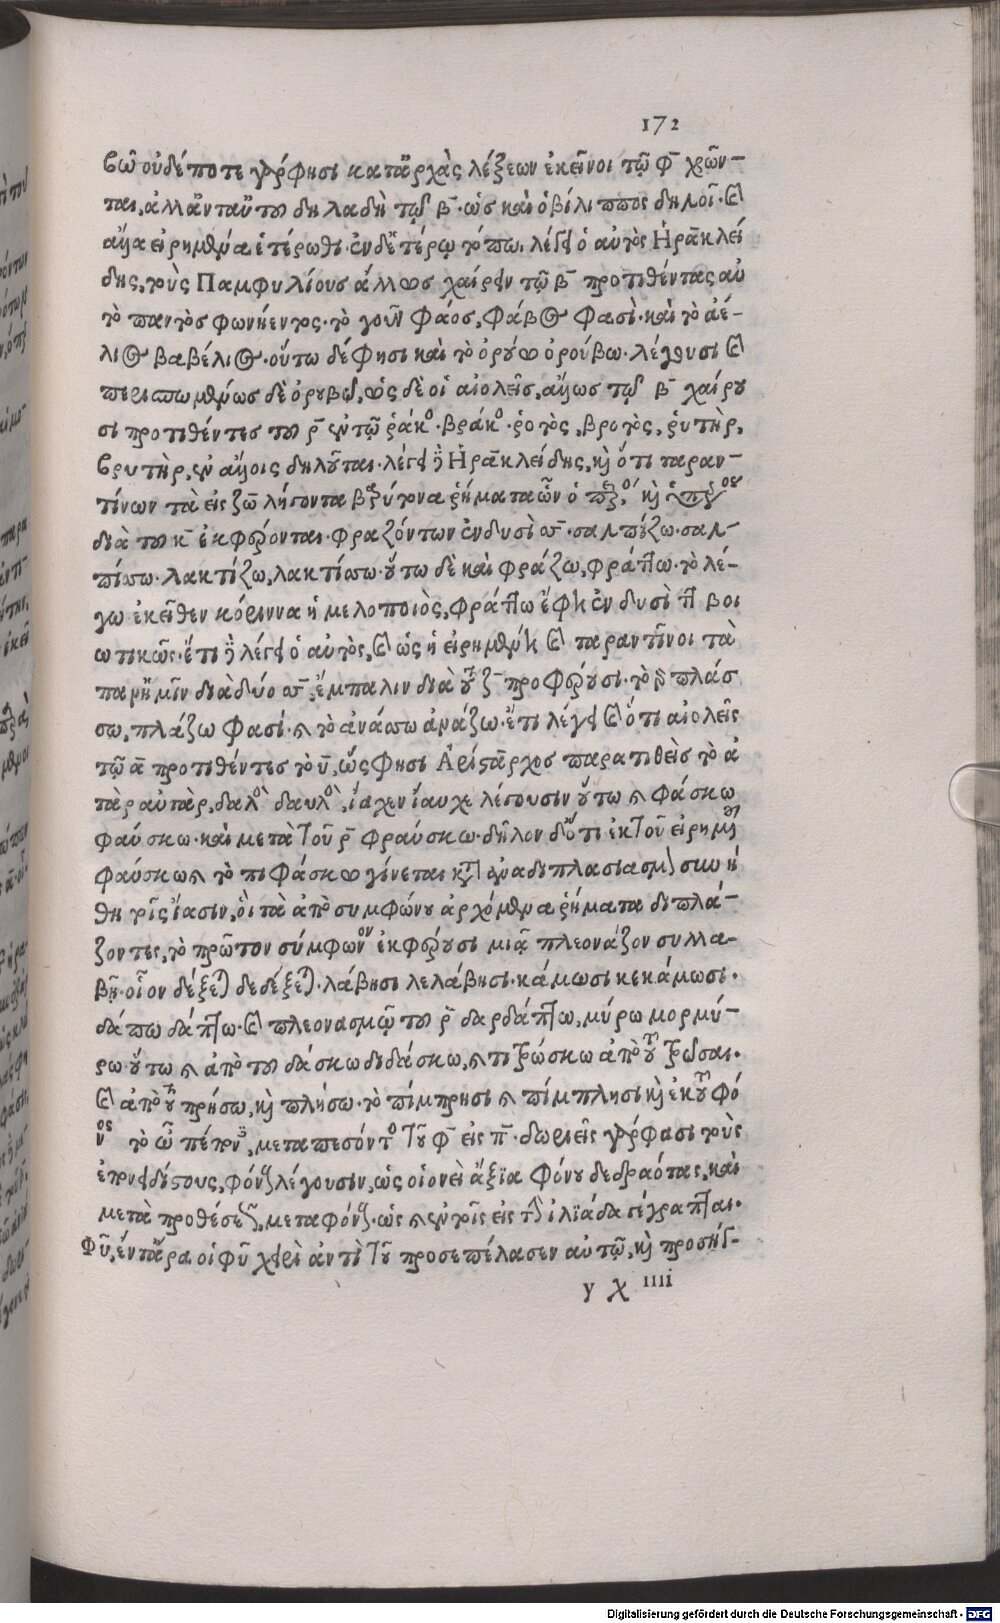 172
βῶ οὐδέποτε γράφησι καταρχὰς λέξεων ἐκεῖνοι τῷ φ̄ χῶν-
ται, ἀλλ' ἀντ' αὐτοῦ δηλαδὴ τῷ β̄. ὡς καὶ ὁ βίλιππος δηλοῖ. καὶ
ἄλλα εἰρημένα ἑτέρωθι. ἐν δὲ ἑτέρῳ τόπῳ, λέγει ὁ αὐτὸς Ἡρακλεί
δης, τοὺς Παμφυλίους ἄλλως χαίρειν τῷ β̄ προτιθέντας αὐ
τὸ παντὸς φωνήεντος. τὸ γοῦν φάος, φάβος φασὶ. καὶ τὸ ἀέ-
λιος βαβέλιος. οὕτω δέ φησι καὶ τὸ ὀρούω ὀρούβω. λέγουσι καὶ
περισπωμένως δὲ ὀρουβῶ, ὡς δὲ οἱ αἰολεῖς, ἄλλως τῷ β̄ χαίρου
σι προτιθέντες τοῦ ρ̄ ἐν τῷ ῥάκος. βράκος. ῥοτὸς, βροτὸς, ῥυτὴρ,
βρυτὴρ, ἐν ἄλλοις δηλοῦται. λέγει δὲ Ἡρακλείδης, καὶ ὅτι ταραν-
τίνων τὰ εἰς ζω λήγοντα βαρύτονα ῥήματα ὧν ὁ
διὰ τοῦ κ̄ ἐκφέρονται. φραζόντων ἐν δυσὶ σ̄. σαλπίζω. σαλ-
πίσσω. λακτίζω, λακτίσσω. οὕτω δὲ καὶ φράζω, φράττω. τὸ λέ-
γω ἐκεῖθεν κόριννα ἡ μελοποιὸς, φράττω ἔφη ἐν δυσὶ τ̄τ̄ βοι
ωτικῶς. ἔτι δὲ λέγει ὁ αὐτὸς, καὶ ὡς ἡ εἰρημένη καὶ ταραντῖνοι τὰ
παρ' ἡμῖν διὰ δύο σ̄, ἔμπαλιν διὰ τοῦ ζ̄ προφέρουσι. τὸ γὰρ πλάσ
σω, πλάζω φασὶ. καὶ τὸ ἀνάσσω ἀνάζω. ἔτι λέγει καὶ ὅτι αἰολεῖς
τῷ ᾱ προτιθέντες τὸ ῡ, ὥς φησι Ἀρίσταρχος παρατιθεὶς τὸ ἀ
τὰρ αὐτὰρ, δαλὸς δαυλὸς, ἴαχεν ἴαυχε λέγουσιν οὕτω καὶ φάσκω
φαύσκω. καὶ μετὰ τοῦ ρ̄ φραύσκω. δῆλον δ' ὅτι ἐκ τοῦ εἰρημένου
φαύσκω καὶ τὸ πιφάσκω γίνεται κατὰ ἀναδιπλασιασμὸν συνή
θη τοῖς ἴασιν, οἳ τὰ ἀπὸ συμφώνου ἀρχόμενα ῥήματα διπλά-
ζοντες, τὸ πρῶτον σύμφωνον ἐκφέρουσι μιᾷ πλεονάζον συλλα-
βῇ. οἷον δέξεται δεδέξεται. λάβησι λελάβησι. κάμωσι κεκάμωσι.
δάπω δάπτω. καὶ πλεονασμῷ τοῦ ρ̄ δαρδάπτω, μύρω μορμύ-
ρω οὕτω καὶ ἀπὸ τοῦ δάσκω διδάσκω, καὶ τιτρώσκω ἀπὸ τοῦ τρῶσαι.
καὶ ἀπὸ τοῦ πρήσω, καὶ πλήσω. τὸ πίμπρησι καὶ πίμπλησι καὶ ἐκ τοῦ φό
νος τὸ ὦ πέπον, μεταπεσόντος τοῦ φ̄ εἰς π̄. δωριεῖς γράφασι τοὺς
ἐπονειδίστους, φόνους λέγουσιν, ὡς οἱονεὶ ἄξια φόνου δεδραότας, καὶ
μετὰ προθέσεως, μεταφόνους. ὡς καὶ ἐν τοῖς εἰς τὴν ἰλιάδα γέγραπται.
φῦ, ἔν τ' ἄρα οἱ φῦ χειρὶ ἀντὶ τοῦ προσεπέλασεν αὐτῷ, καὶ προσήγ-
y χ iiii
Digitalisierung gefördert durch die Deutsche Forschungsgemeinschaft - DFG